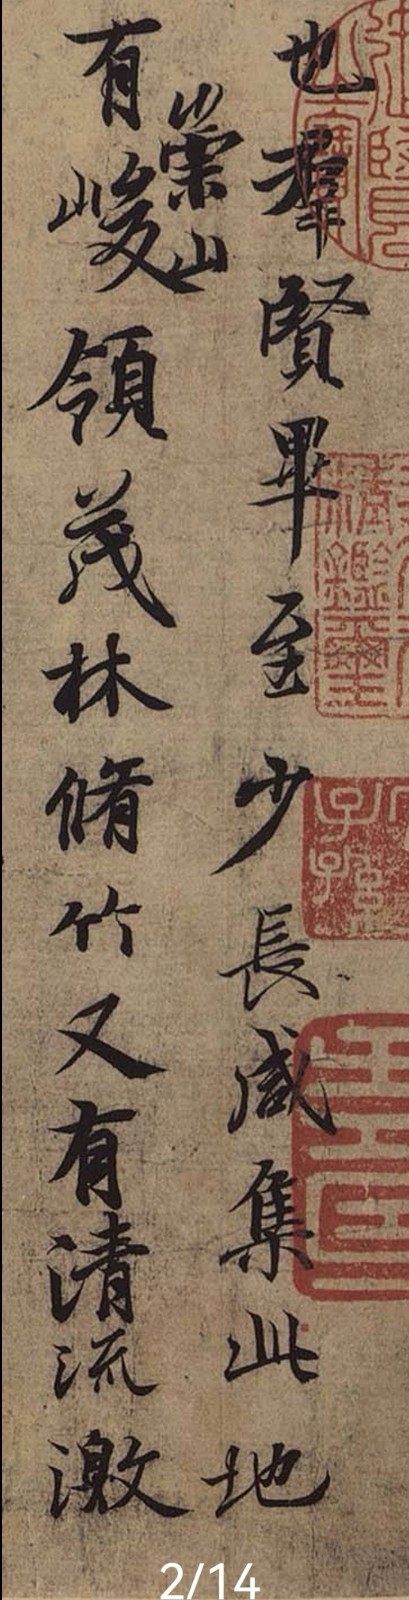 也羣賢畢至少長咸集此地
崇山
有峻領茂林脩竹又有清流激
2/14